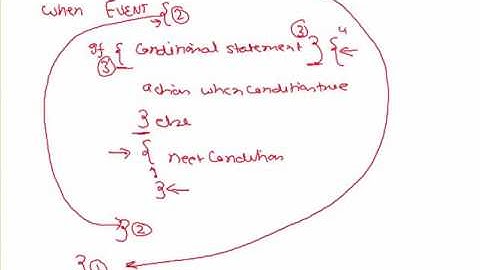 when EVENT { ②
If { Conditional statement } { 4
③ ③
action when condition true
} else
{ next Condition
}
} ②
} ①